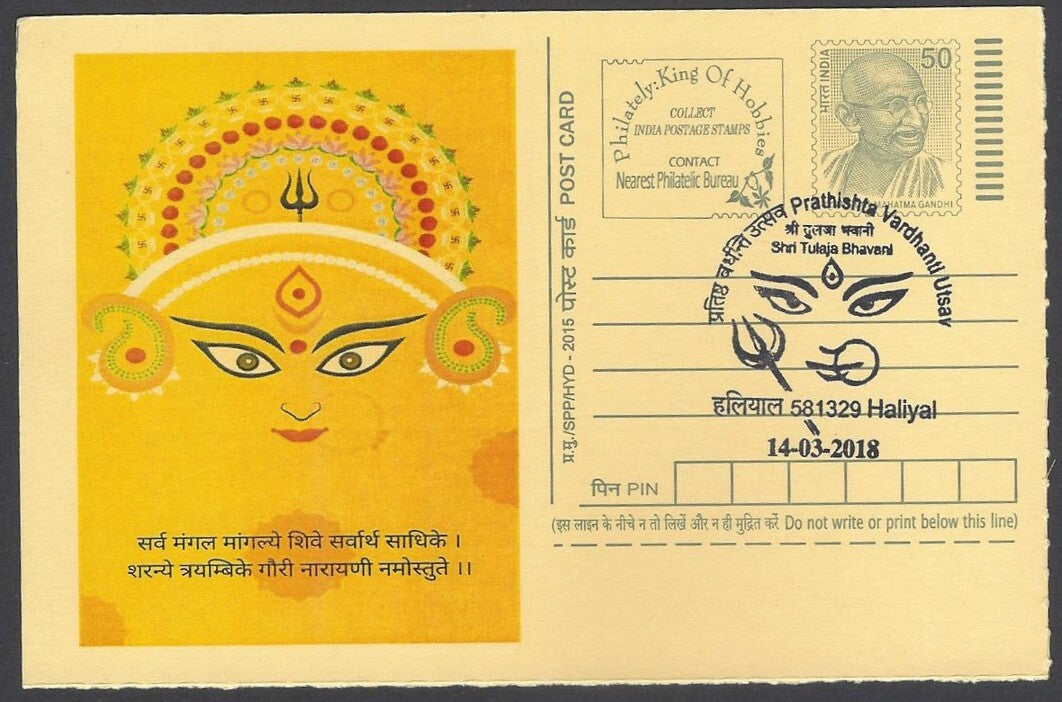 सर्व मंगल मांगल्ये शिवे सर्वार्थ साधिके ।
शरन्ये त्रयम्बिके गौरी नारायणी नमोस्तुते ।।
प्र.मु./SPP/HYD - 2015 पोस्ट कार्ड POST CARD
Philately: King Of Hobbies
COLLECT
INDIA POSTAGE STAMPS
CONTACT
Nearest Philatelic Bureau
भारत INDIA
50
MAHATMA GANDHI
प्रतिष्ठ वर्धन्ति उत्सव Prathishta Vardhanti Utsav
श्री तुलजा भवानी
Shri Tulaja Bhavani
हलियाल 581329 Haliyal
14-03-2018
पिन PIN
(इस लाइन के नीचे न तो लिखें और न ही मुद्रित करें Do not write or print below this line)